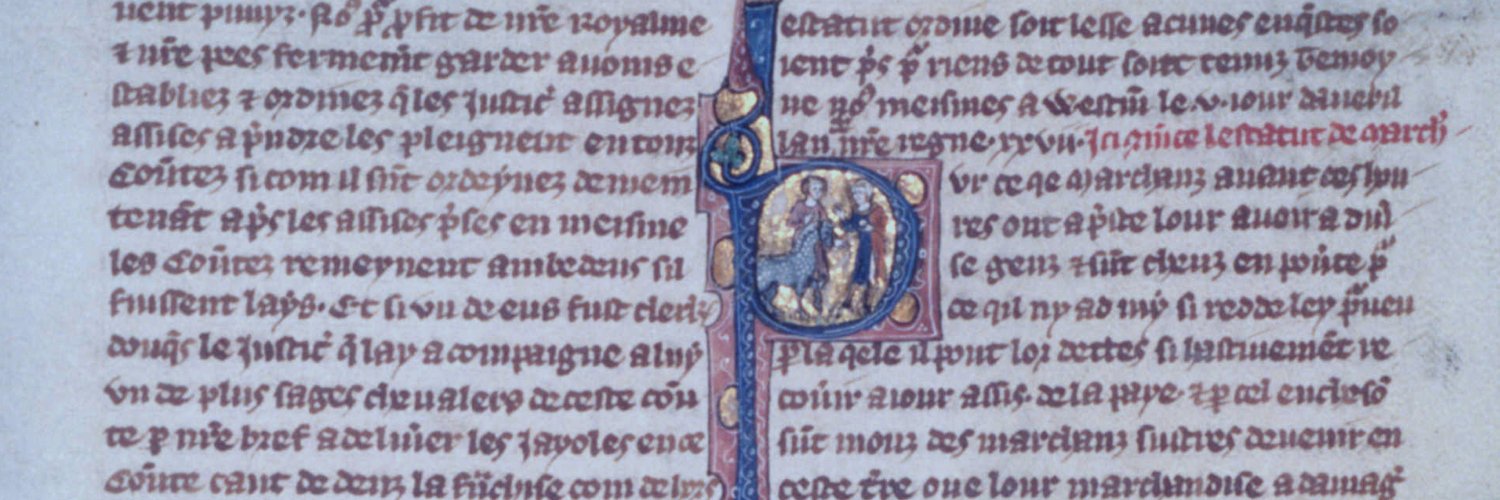 uent puniz. Nos pur profit de nre Royalme
& nre pees fermemt garder auoms e
stabliez & ordinez q̃ les Justic̃ assignez
assises a p̃ndre les pleignent en touz
Coũtez si com il sũt ordeynez demein
tenãt ap̃s les assises p̃ses en meisme
les Coũtez remeynent ambedeus si il
fuissent lays. Et si vn de eus fust clerk
douq̃s le Justic̃ q̃ lay acompaigne a luy
vn de plus sages cheualers de ceste coũ
te p nre bref a deliũer les Jayoles en ce
Coũte taut de denz la frãchise com dehors
estatut ordine soit lesse acunes enq̃stes so
ient p̃s p̃ riens de tout soint tenuz Temoy
ne nos meismes a Westm̃ le v. iour daueril
lan nre regne. xxvii. Ici cõmce lestatut de march̃
Pvr ce qe Marchanz auant ces hou
res ont ap̃ste lour auoir a diũ
se genz & sũt cheuz en poũte p̃
ce qil ny ad my si redde ley p̃ueu
p la qele il pont lor dettes si hastiuemẽt re
coũir a iour assis. de la paye. & p cel enchesõ
sũt mouz des marchanz sustres de uenir en
ceste t̃re oue lour marchandise a damag̃